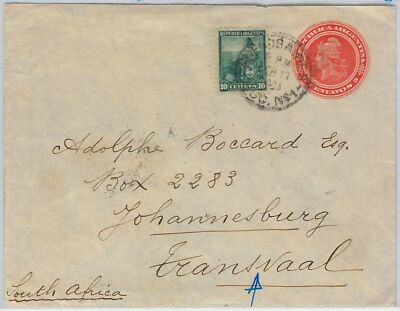 REPUBLICA ARGENTINA
10 CENTAVOS 10
REPUBLICA ARGENTINA
CENTAVOS 5
Adolphe Boccard Esq.
Box 2283
Johannesburg
Transvaal
South Africa